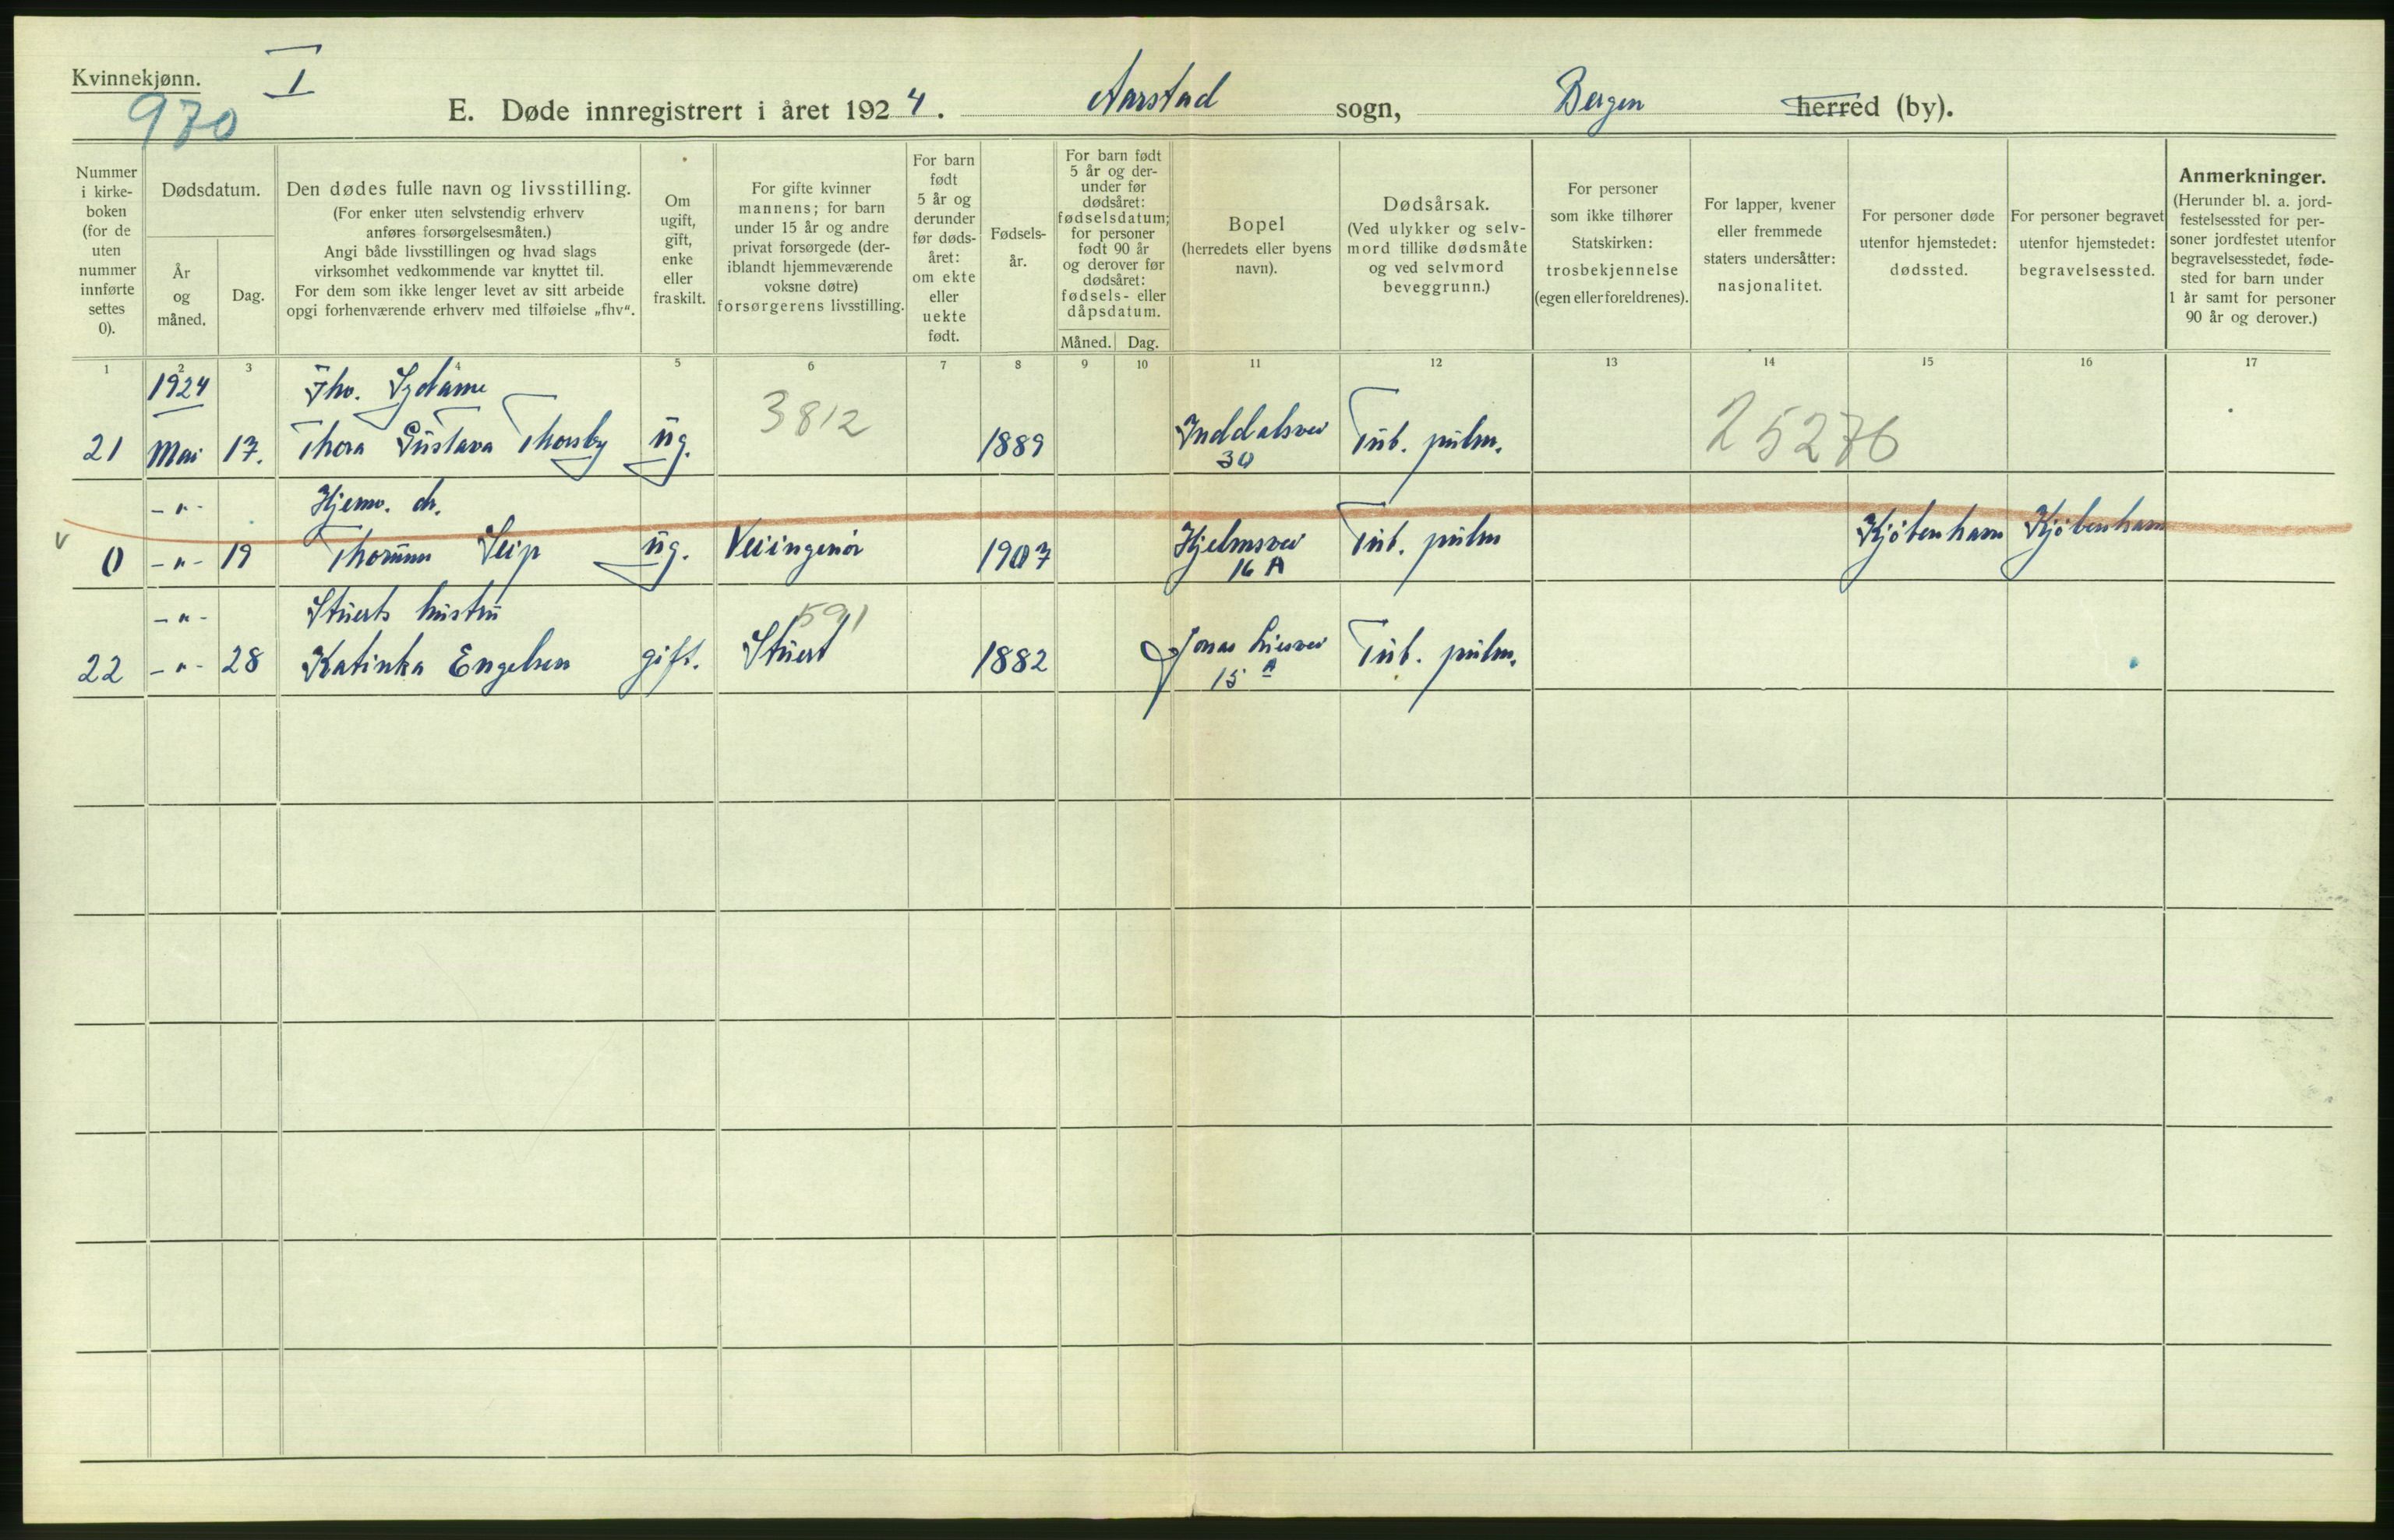 Kvinnekjønn.
I
970
E. Døde innregistrert i året 1924. Aarstad sogn, Bergen herred (by).
Nummer i kirkeboken (for de uten nummer innførte settes 0).
Dødsdatum.
År og måned.
Dag.
Den dødes fulle navn og livsstilling.
(For enker uten selvstendig erhverv anføres forsørgelsesmåten.)
Angi både livsstillingen og hvad slags virksomhet vedkommende var knyttet til.
For dem som ikke lenger levet av sitt arbeide opgi forhenværende erhverv med tilføielse „fhv“.
Om ugift, gift, enke eller fraskilt.
For gifte kvinner mannens; for barn under 15 år og andre privat forsørgede (deriblandt hjemmeværende voksne døtre) forsørgerens livsstilling.
For barn født 5 år og derunder før dødsåret: om ekte eller uekte født.
Fødselsår.
For barn født 5 år og derunder før dødsåret: fødselsdatum; for personer født 90 år og derover før dødsåret: fødsels- eller dåpsdatum.
Måned. Dag.
Bopel
(herredets eller byens navn).
Dødsårsak.
(Ved ulykker og selvmord tillike dødsmåte og ved selvmord beveggrunn.)
For personer som ikke tilhører Statskirken: trosbekjennelse (egen eller foreldrenes).
For lapper, kvener eller fremmede staters undersåtter: nasjonalitet.
For personer døde utenfor hjemstedet: dødssted.
For personer begravet utenfor hjemstedet: begravelsessted.
Anmerkninger.
(Herunder bl. a. jordfestelsessted for personer jordfestet utenfor begravelsesstedet, fødested for barn under 1 år samt for personer 90 år og derover.)
1 2 3 4 5 6 7 8 9 10 11 12 13 14 15 16 17
1924 Fhv. Sydame 3812
21 Mai 17. Thora Gustava Thorsby ug. 1889 Inddalsvei 30 Tub. pulm. 25276
-"- Hjemv. dr.
V 0 -"- 19 Thorunn Seip ug. Veiingeniør 1907 Hjelmsvei 16 A Tub. pulm Kjøbenhavn Kjøbenhavn
-"- Stuerts hustru 591
22 -"- 28 Katinka Engelsen gift. Stuert 1882 Jonas Liesvei 15 A Tub. pulm.